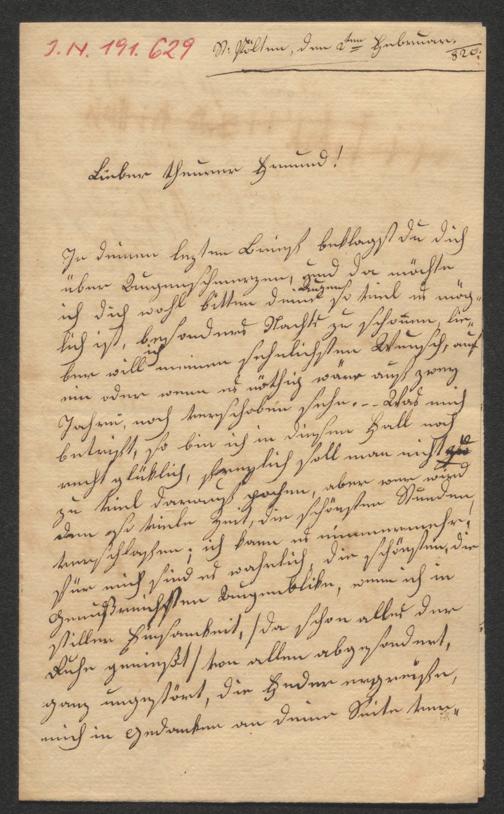 J.N. 191.629
St. Pölten, den 2ten Februar.
820.
Lieber theurer Freund!
In deinem lezten Briefe beklagst du dich
über Augenschmerzen, und da möchte
ich dich wohl bitten deine Augen so viel es mög-
lich ist, besonders Nachts zu schonen, lie-
ber will ich meinen sehnlichsten Wunsch, auf
ein oder wenn es nöthig wäre auf zwey
Jahre, noch verschoben sehn. – Was mich
betrifft, so bin ich in diesem Fall noch
recht glüklich, freylich soll man nicht
zu viel darauf pochen, aber wer wird
denn so viele Zeit, die schönsten Stunden,
verschlafen; ich kann es nimmermehr;
für mich sind es wahrlich die schönsten, die
Genußreichsten Augenblike, wenn ich in
stiller Einsamkeit, /da schon alles der
Ruhe genießt/ von allen abgesondert,
ganz ungestört, die Feder ergreife,
mich in Gedanken an deine Seite ver-